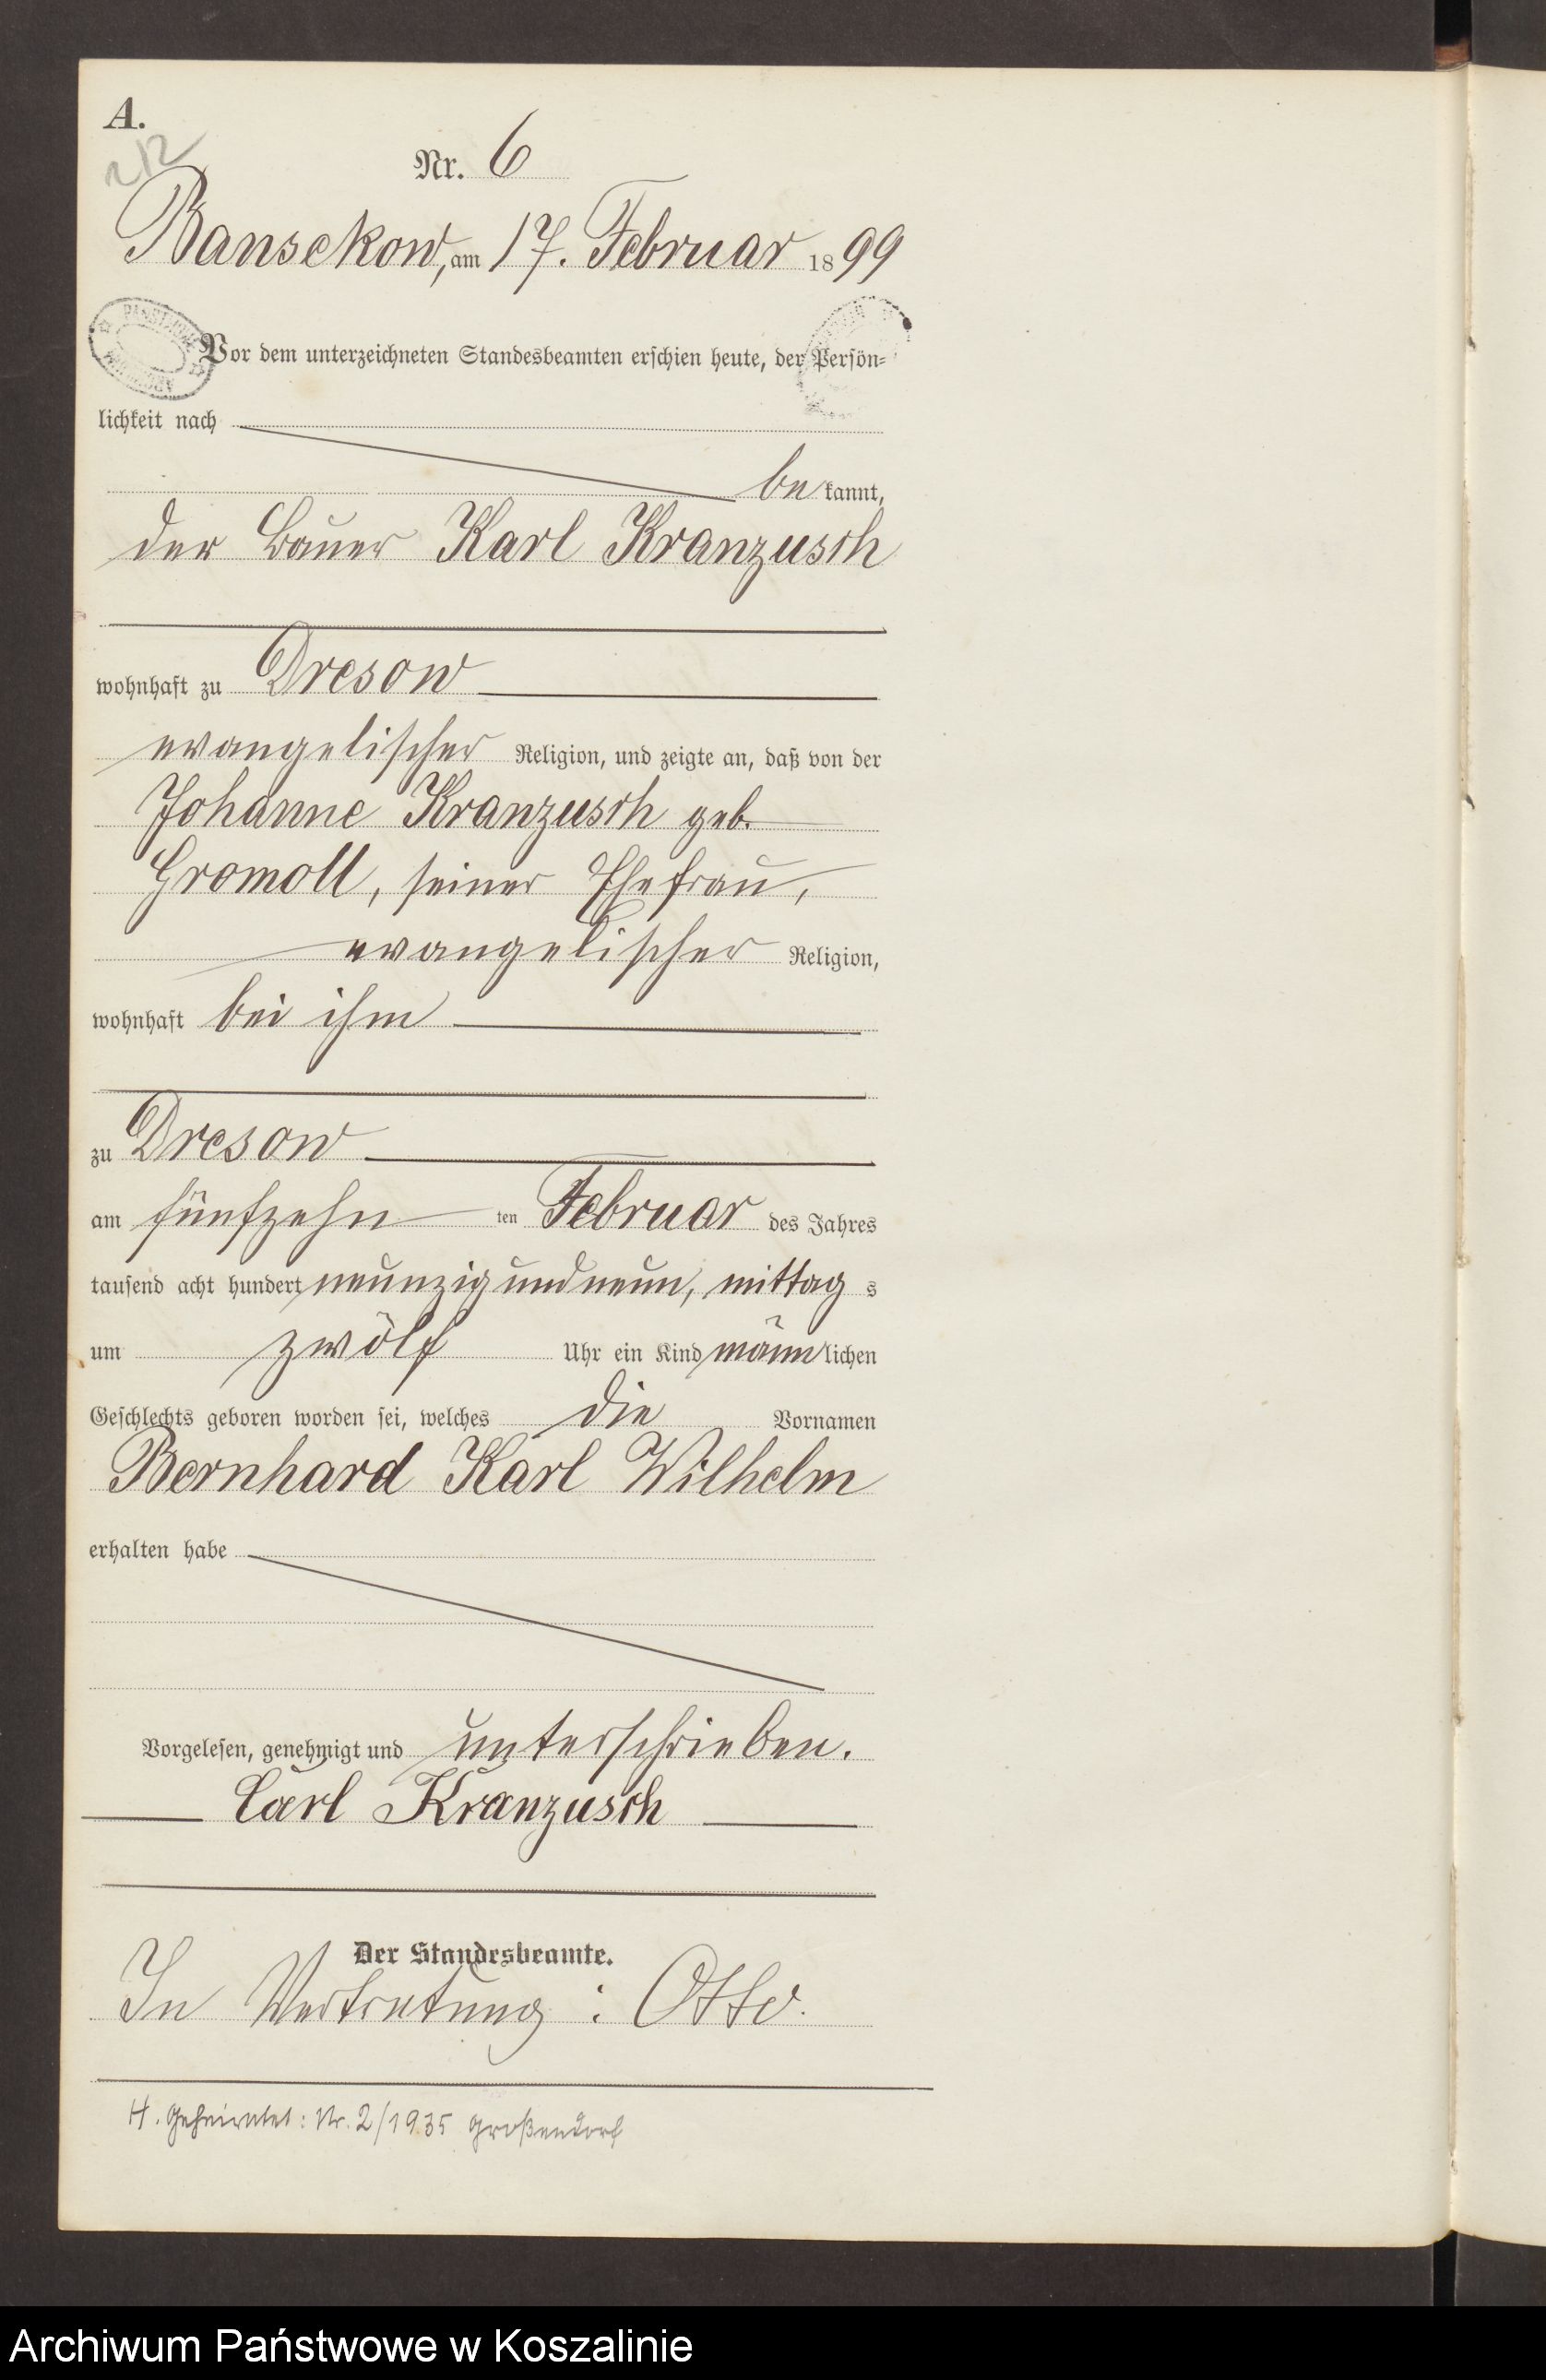 A.
212
Nr. 6
Bansekow, am 17. Februar 1899
Vor dem unterzeichneten Standesbeamten erschien heute, der Persön-
lichkeit nach
bekannt,
der Bauer Karl Kranzusch
wohnhaft zu Dresow
evangelischer Religion, und zeigte an, daß von der
Johanne Kranzusch geb.
Gromoll, seiner Ehefrau,
evangelischer Religion,
wohnhaft bei ihm
zu Dresow
am fünfzehn ten Februar des Jahres
tausend acht hundert neunzig und neun, mittag s
um zwölf Uhr ein Kind männlichen
Geschlechts geboren worden sei, welches die Vornamen
Bernhard Karl Wilhelm
erhalten habe
Vorgelesen, genehmigt und unterschrieben.
Carl Kranzusch
Der Standesbeamte.
In Vertretung: Otto.
H. Geheiratet: Nr. 2/1935 Großendorf
Archiwum Państwowe w Koszalinie